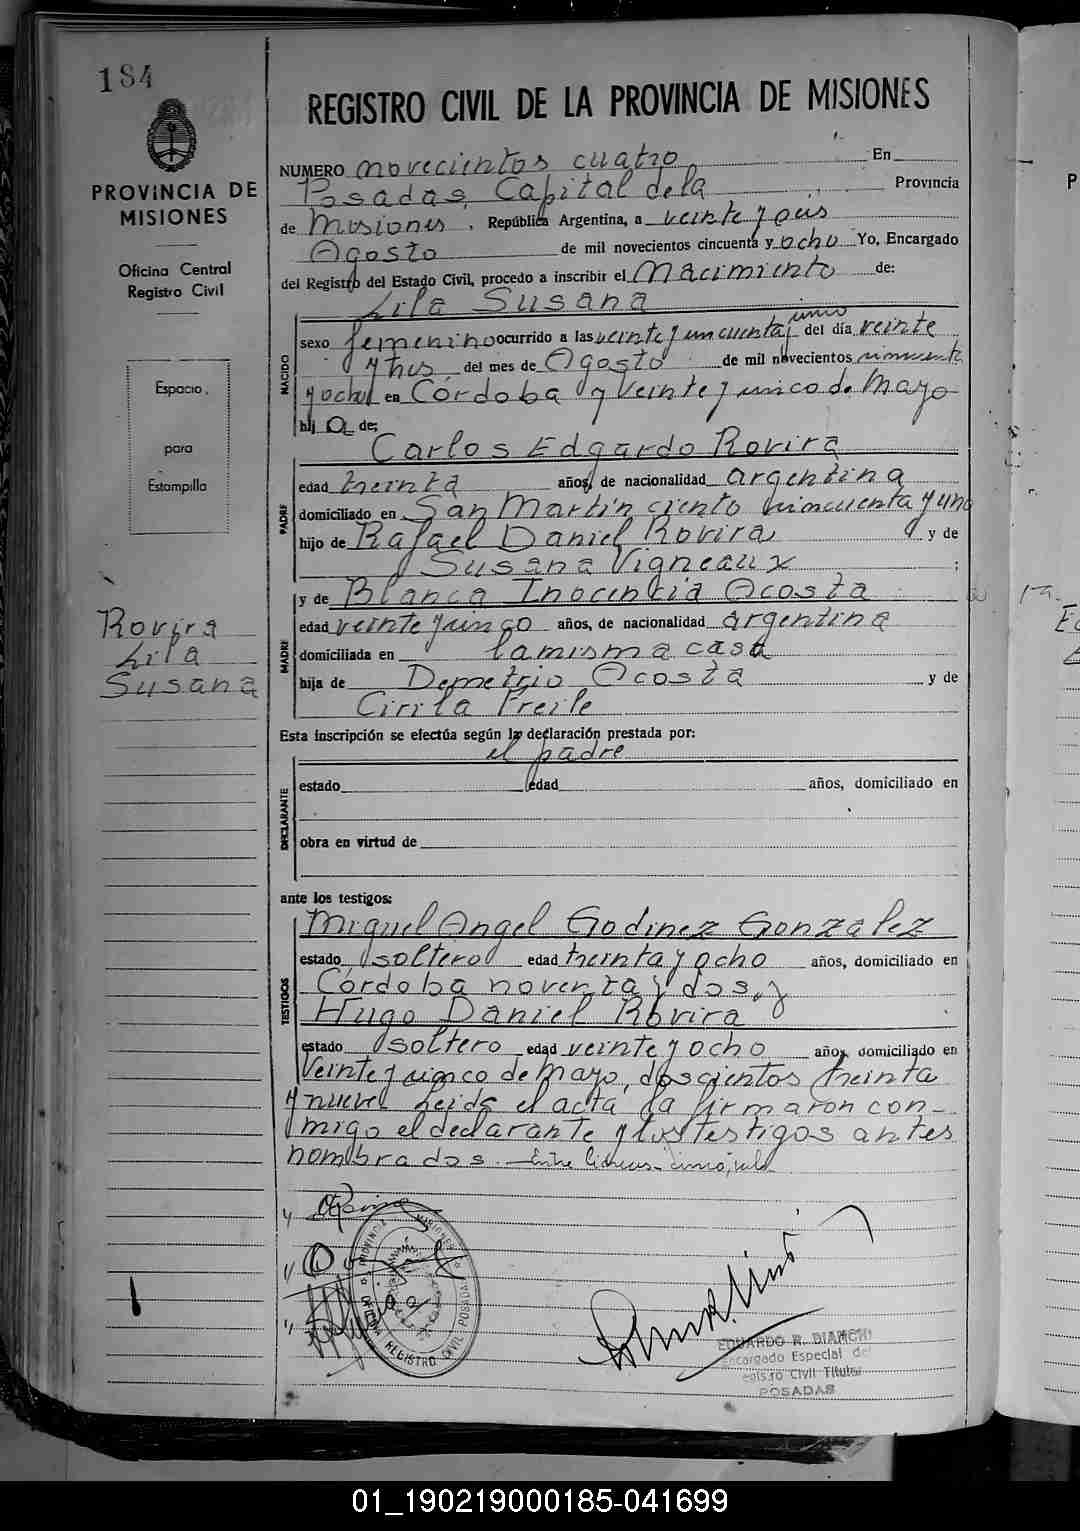 184
PROVINCIA DE
MISIONES
Oficina Central
Registro Civil
Espacio
para
Estampilla
Rovira
Lila
Susana
REGISTRO CIVIL DE LA PROVINCIA DE MISIONES
NUMERO novecientos cuatro En
Posadas, Capital de la Provincia
de Misiones, República Argentina, a veinte y seis
Agosto de mil novecientos cincuenta y ocho Yo, Encargado
del Registro del Estado Civil, procedo a inscribir el Nacimiento de:
Lila Susana
NACIDO
sexo femenino ocurrido a las veinte y un cuenta y cinco del día veinte
y tres del mes de Agosto de mil novecientos cincuenta
y ocho en Córdoba y Veinte y cinco de Mayo
hij a de:
Carlos Edgardo Rovira
PADRE
edad treinta años, de nacionalidad argentina
domiciliado en San Martín ciento cincuenta y uno
hijo de Rafael Daniel Rovira y de
Susana Vigneaux ;
y de Blanca Inocencia Acosta
MADRE
edad veinte y cinco años, de nacionalidad argentina
domiciliada en la misma casa
hija de Demetrio Acosta y de
Cirila Freile
Esta inscripción se efectúa según la declaración prestada por:
el padre
DECLARANTE
estado edad años, domiciliado en
obra en virtud de
ante los testigos:
Miguel Angel Godinez Gonzalez
TESTIGOS
estado soltero edad treinta y ocho años, domiciliado en
Córdoba noventa y dos, y
Hugo Daniel Rovira
estado soltero edad veinte y ocho años, domiciliado en
Veinte y cinco de Mayo, doscientos treinta
y nueve. Leida el acta la firmaron con-
migo el declarante y los testigos antes
nombrados. Entre lineas- cinco, vale
PROVINCIA MISIONES
OFICINA REGISTRO CIVIL POSADAS
EDUARDO R. BIANCHI
Encargado Especial del
Registro Civil Titular
POSADAS
01_190219000185-041699